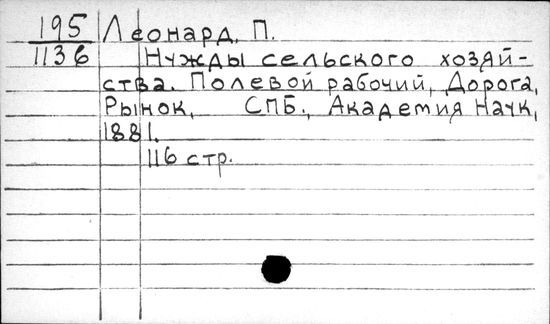 195 Леонард, П.
1136 Нужды сельского хозяй-
ства. Полевой рабочий, Дорога,
Рынок, СПБ., Академия Наук,
1881.
116 стр.